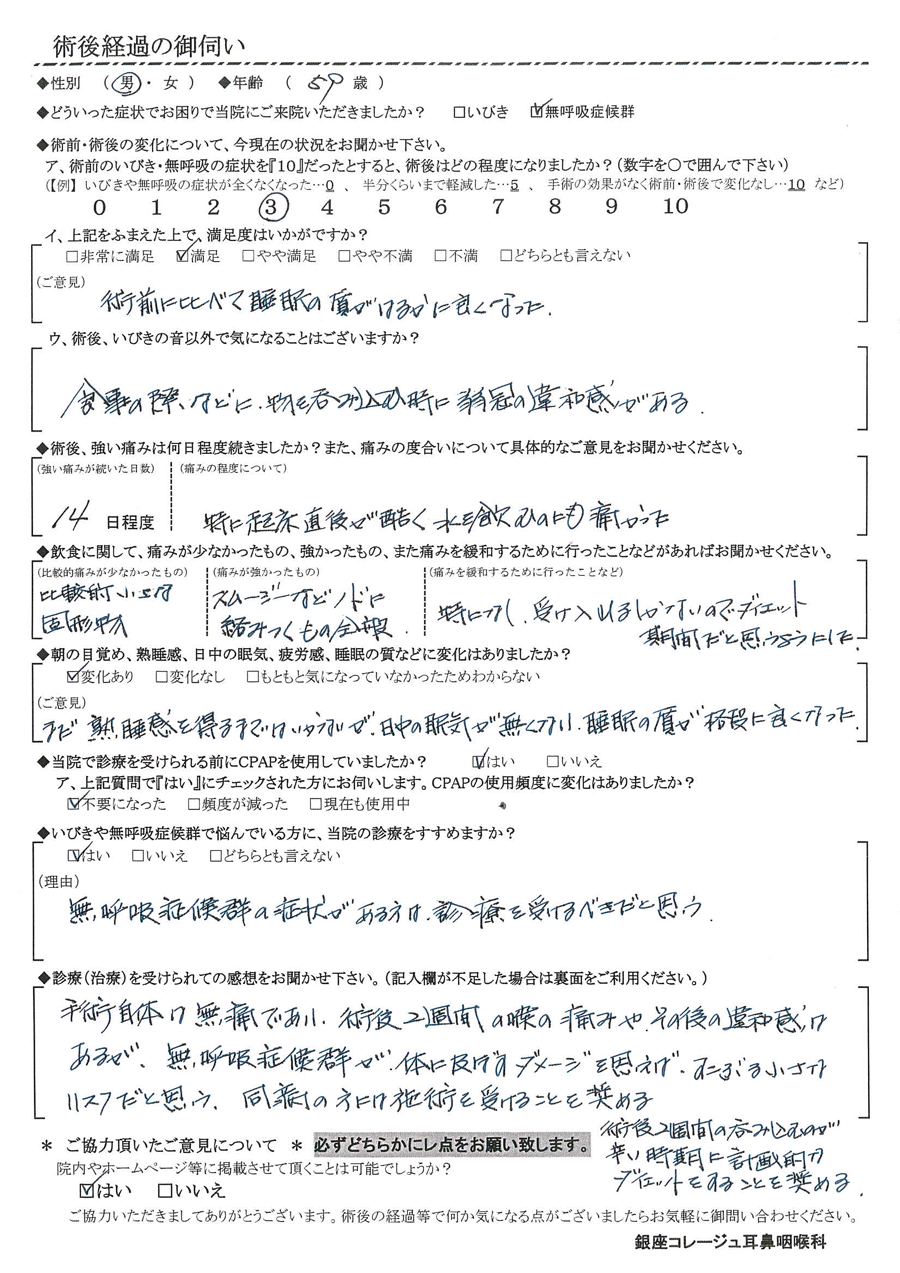 術後経過の御伺い
◆性別 （ 男 ・ 女 ） ◆年齢 （ 59 歳 ）
◆どういった症状でお困りで当院にご来院いただきましたか？ □いびき ☑無呼吸症候群
◆術前・術後の変化について、今現在の状況をお聞かせ下さい。
ア、術前のいびき・無呼吸の症状を『10』だったとすると、術後はどの程度になりましたか？（数字を〇で囲んで下さい）
（【例】 いびきや無呼吸の症状が全くなくなった…0 、 半分くらいまで軽減した…5 、 手術の効果がなく術前・術後で変化なし…10 など）
0 1 2 3 4 5 6 7 8 9 10
イ、上記をふまえた上で、満足度はいかがですか？
□非常に満足 ☑満足 □やや満足 □やや不満 □不満 □どちらとも言えない
（ご意見）
術前に比べて睡眠の質がはるかに良くなった.
ウ、術後、いびきの音以外で気になることはございますか？
食事の際、などに、物を呑み込む時に 若冠の違和感がある.
◆術後、強い痛みは何日程度続きましたか？また、痛みの度合いについて具体的なご意見をお聞かせください。
（強い痛みが続いた日数） （痛みの程度について）
14 日程度 特に起床直後が酷く 水を飲むのにも痛かった
◆飲食に関して、痛みが少なかったもの、強かったもの、また痛みを緩和するために行ったことなどがあればお聞かせください。
（比較的痛みが少なかったもの） （痛みが強かったもの） （痛みを緩和するために行ったことなど）
比較的小さな スムージーなどノドに 特になし、受け入れるしかないのでダイエット
固形物 絡みつくもの全般. 期間だと思うようにした.
◆朝の目覚め、熟睡感、日中の眠気、疲労感、睡眠の質などに変化はありましたか？
☑変化あり □変化なし □もともと気になっていなかったためわからない
（ご意見）
まだ 熟睡感を得るまではいかないが、日中の眠気が無くなり、睡眠の質が格段に良くなった.
◆当院で診療を受けられる前にCPAPを使用していましたか？ ☑はい □いいえ
ア、上記質問で『はい』にチェックされた方にお伺いします。CPAPの使用頻度に変化はありましたか？
☑不要になった □頻度が減った □現在も使用中
◆いびきや無呼吸症候群で悩んでいる方に、当院の診療をすすめますか？
☑はい □いいえ □どちらとも言えない
（理由）
無呼吸症候群の症状がある方は、診療を受けるべきだと思う.
◆診療（治療）を受けられての感想をお聞かせ下さい。（記入欄が不足した場合は裏面をご利用ください。）
手術自体は無痛であり、術後2週間の喉の痛みや、その後の違和感は
あるが、無呼吸症候群が、体に及ぼすダメージを思えば、たぶる小さな
リスクだと思う、同病の方には施術を受けることを奨める
＊ ご協力頂いたご意見について ＊ 必ずどちらかにレ点をお願い致します。
院内やホームページ等に掲載させて頂くことは可能でしょうか？
☑はい □いいえ
術後2週間の呑み込むのが
辛い時期に計画的な
ダイエットをすることを奨める.
ご協力いただきましてありがとうございます。術後の経過等で何か気になる点がございましたらお気軽に御問い合わせください。
銀座コレージュ耳鼻咽喉科